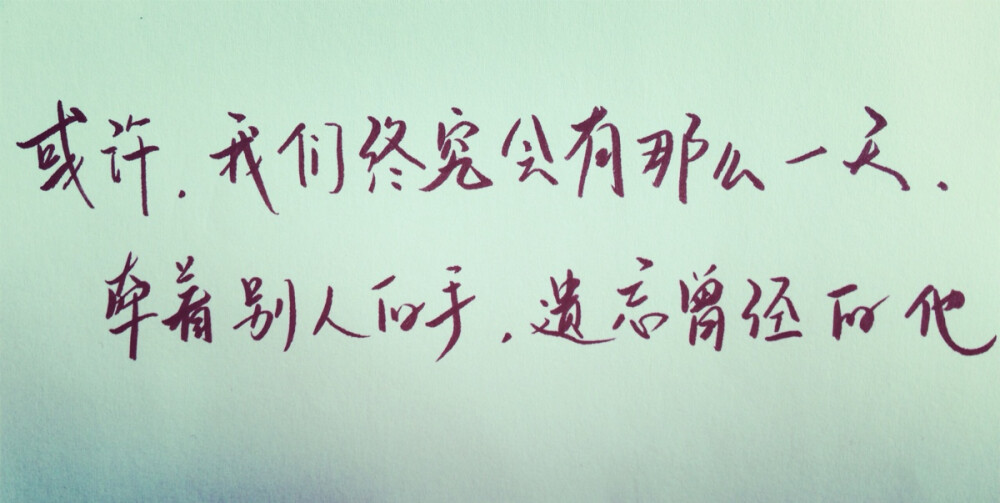 或许,我们终究会有那么一天,
牵着别人的手,遗忘曾经的他